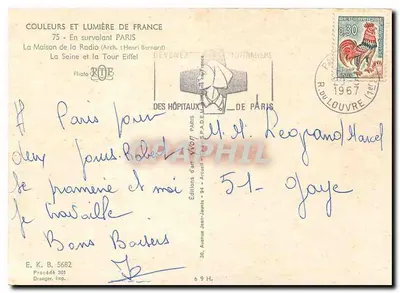 COULEURS ET LUMIÈRE DE FRANCE
75 - En survolant PARIS
La Maison de la Radio (Arch. : Henri Bernard)
La Seine et la Tour Eiffel
Photo
DES HÔPITAUX DE PARIS
0,30
1967
R. DU LOUVRE (1er)
À Paris pour
deux jours. Robert
se promène et moi
je travaille
Bons Baisers
M. M. Legrand Marcel
51 - Gaye
Editions d'art YVON PARIS
E. K. B. 5682
Procédé 301
Draeger Imp.
6 9 H.